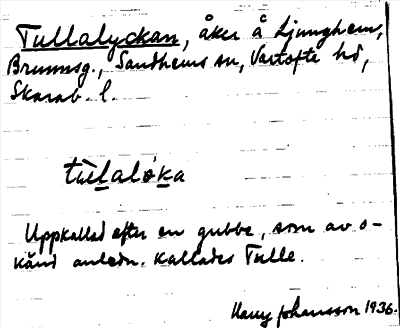 Tullalyckan, åker å Ljunghem,
Brunnsg., Sandhems sn, Vartofte hd,
Skarab. l.
tùlalỏka
Uppkallad efter en gubbe, som av o-
känd anledn. kallades Tulle.
Harry Johansson 1936.